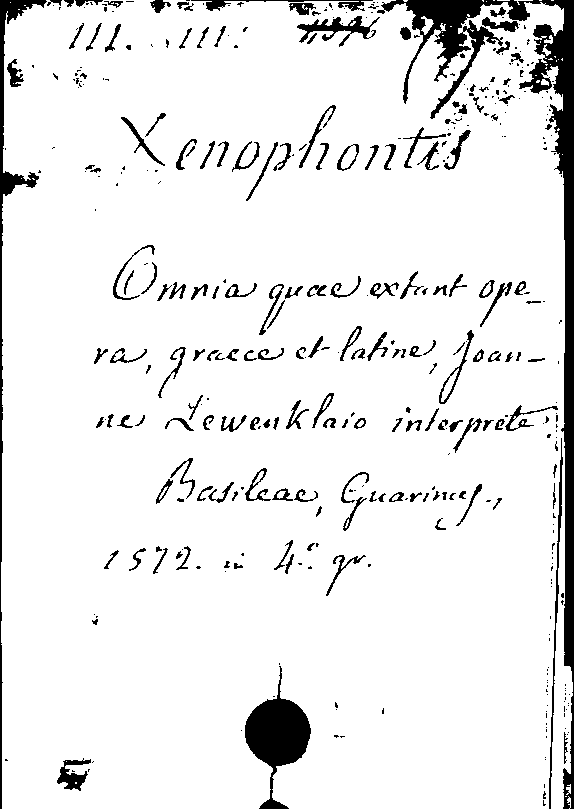 III. III.
Xenophontis
Omnia quae extant ope-
ra, graece et latine, Joan-
ne Lewenklaio interprete.
Basileae, Guarinus,
1572. in 4.° gr.